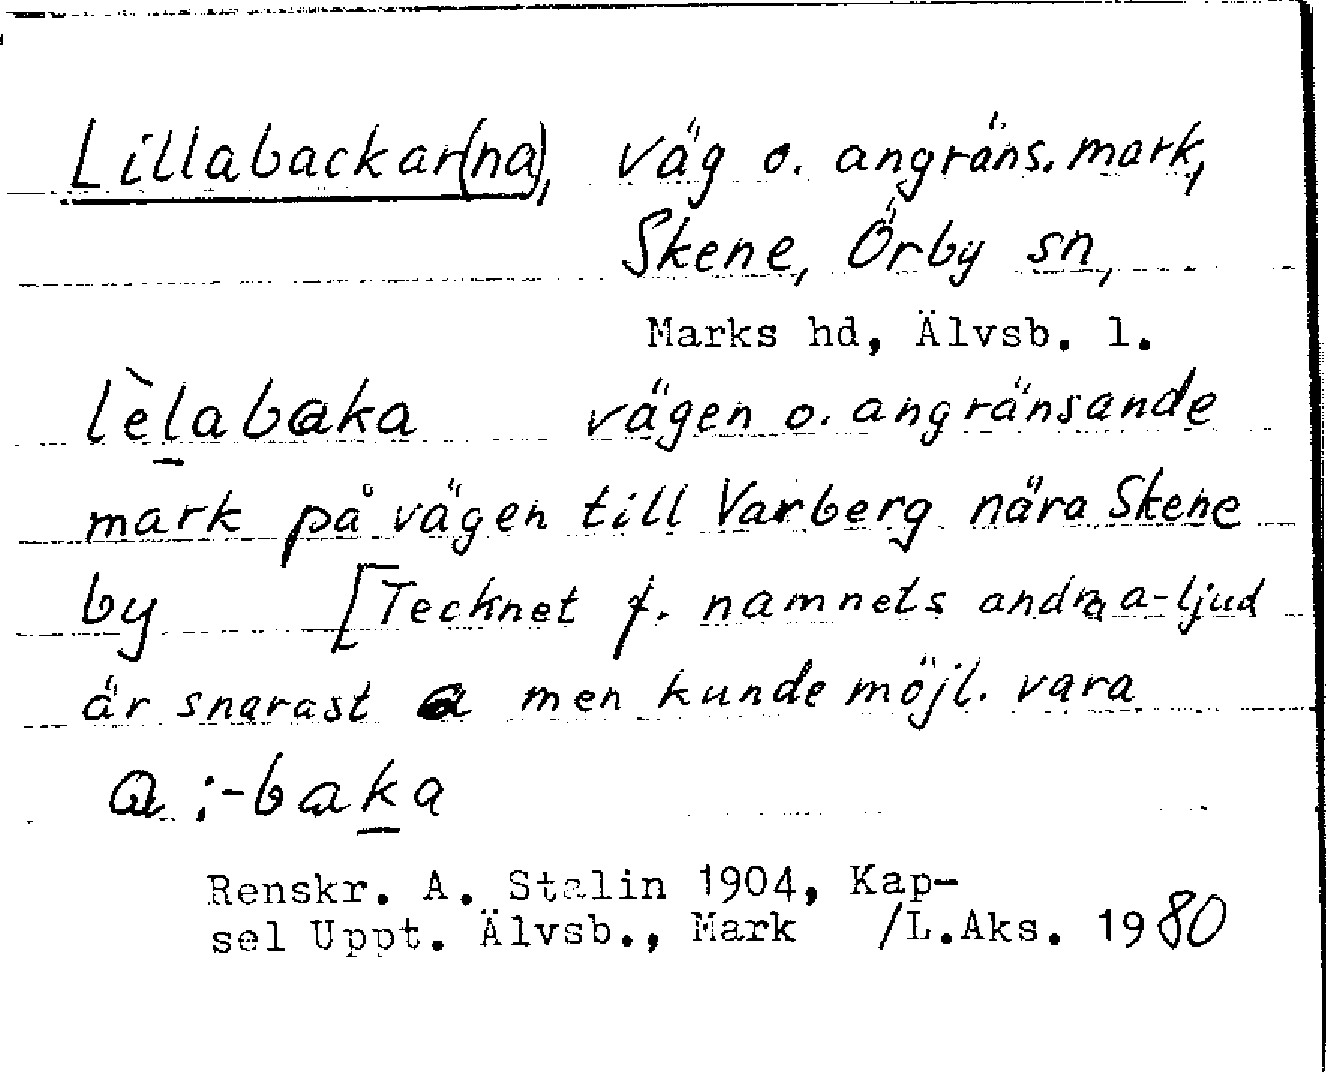 Lillabackar(na), väg o. angräns. mark,
Skene, Örby sn,
Marks hd, Älvsb. l.
lèlabaka vägen o. angränsande
mark på vägen till Varberg nära Skene
by [Tecknet f. namnets andra a-ljud
är snarast a men kunde möjl. vara
a :-baka
Renskr. A. Stalin 1904, Kap-
sel Uppt. Älvsb., Mark /L.Aks. 1980